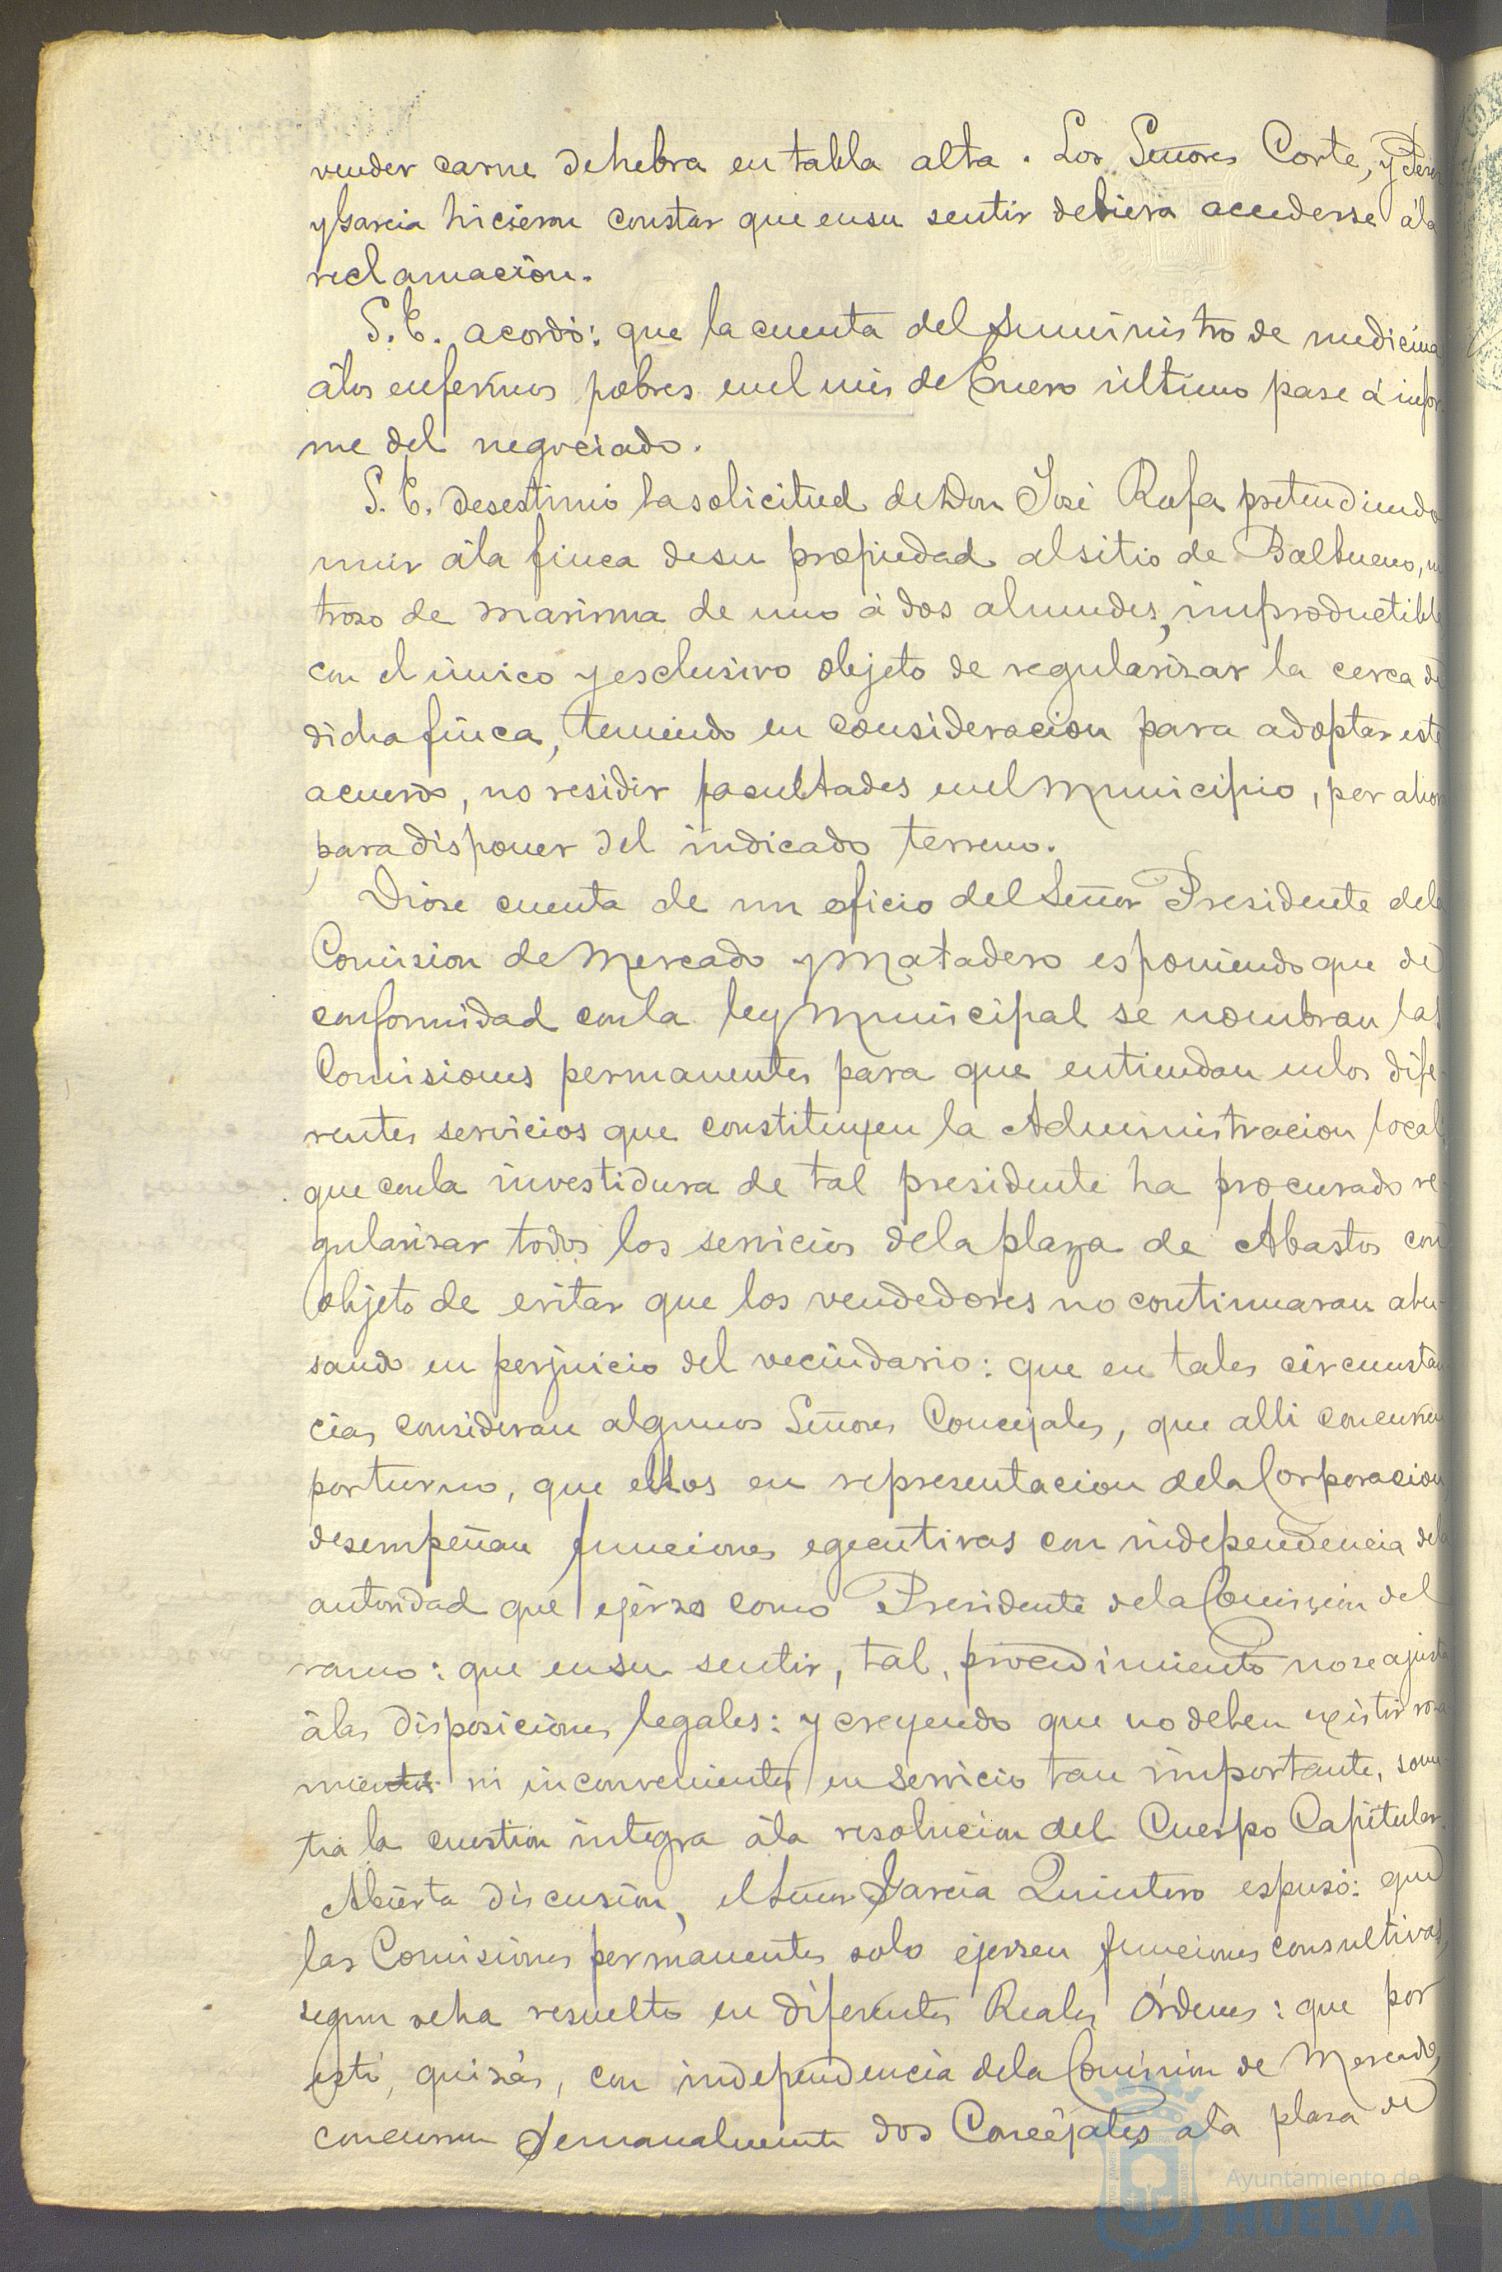 vender carne de hebra en tabla alta. Los Señores Corte, y Perez
y Garcia hicieron constar que en su sentir debiera accederse á la
reclamación.
S. E. acordó: que la cuenta del suministro de medicina
á los enfermos pobres en el mes de Enero último pase á infor-
me del negociado.
S. E. desestimó la solicitud de Don José Rafa pretendiendo
unir á la finca de su propiedad al sitio de Balbueno, un
troso de marisma de uno á dos almudes, improductible
con el único y esclusivo objeto de regularisar la cerca de
dicha finca, teniendo en consideracion para adoptar este
acuerdo, no residir facultades en el Municipio, por ahora
para disponer del indicado terreno.
Dióse cuenta de un oficio del Señor Presidente de la
Comision de Mercado y Matadero esponiendo que de
conformidad con la ley Municipal se nombran las
Comisiones permanentes para que entiendan en los dife-
rentes servicios que constituyen la Administracion local,
que con la investidura de tal presidente ha procurado re-
gularisar todos los servicios de la plaza de Abastos con
objeto de evitar que los vendedores no continuaran abu-
sando en perjuicio del vecindario: que en tales circunstan
cias consideran algunos Señores Concejales, que alli concurren
por turno, que ellos en representacion de la Corporacion
desempeñan funciones egecutivas con independencia de la
autoridad que ejerse como Presidente de la Comision del
ramo: que en su sentir, tal, procedimiento no se ajusta
á las disposiciones legales: y creyendo que no deben existir rosa
mientos ni inconvenientes en servicio tan importante, some
tia la cuestion integra á la resolucion del Cuerpo Capitular.
Abierta discusión, el Señor Garcia Quintero espuso: que
las Comisiones permanentes solo ejersen funciones consultivas,
segun se ha resuelto en diferentes Reales Órdenes: que por
esto, quisás, con independencia de la Comisión de Mercado,
concurren semanalmente dos Concejales á la plasa de
Ayuntamiento de
HUELVA